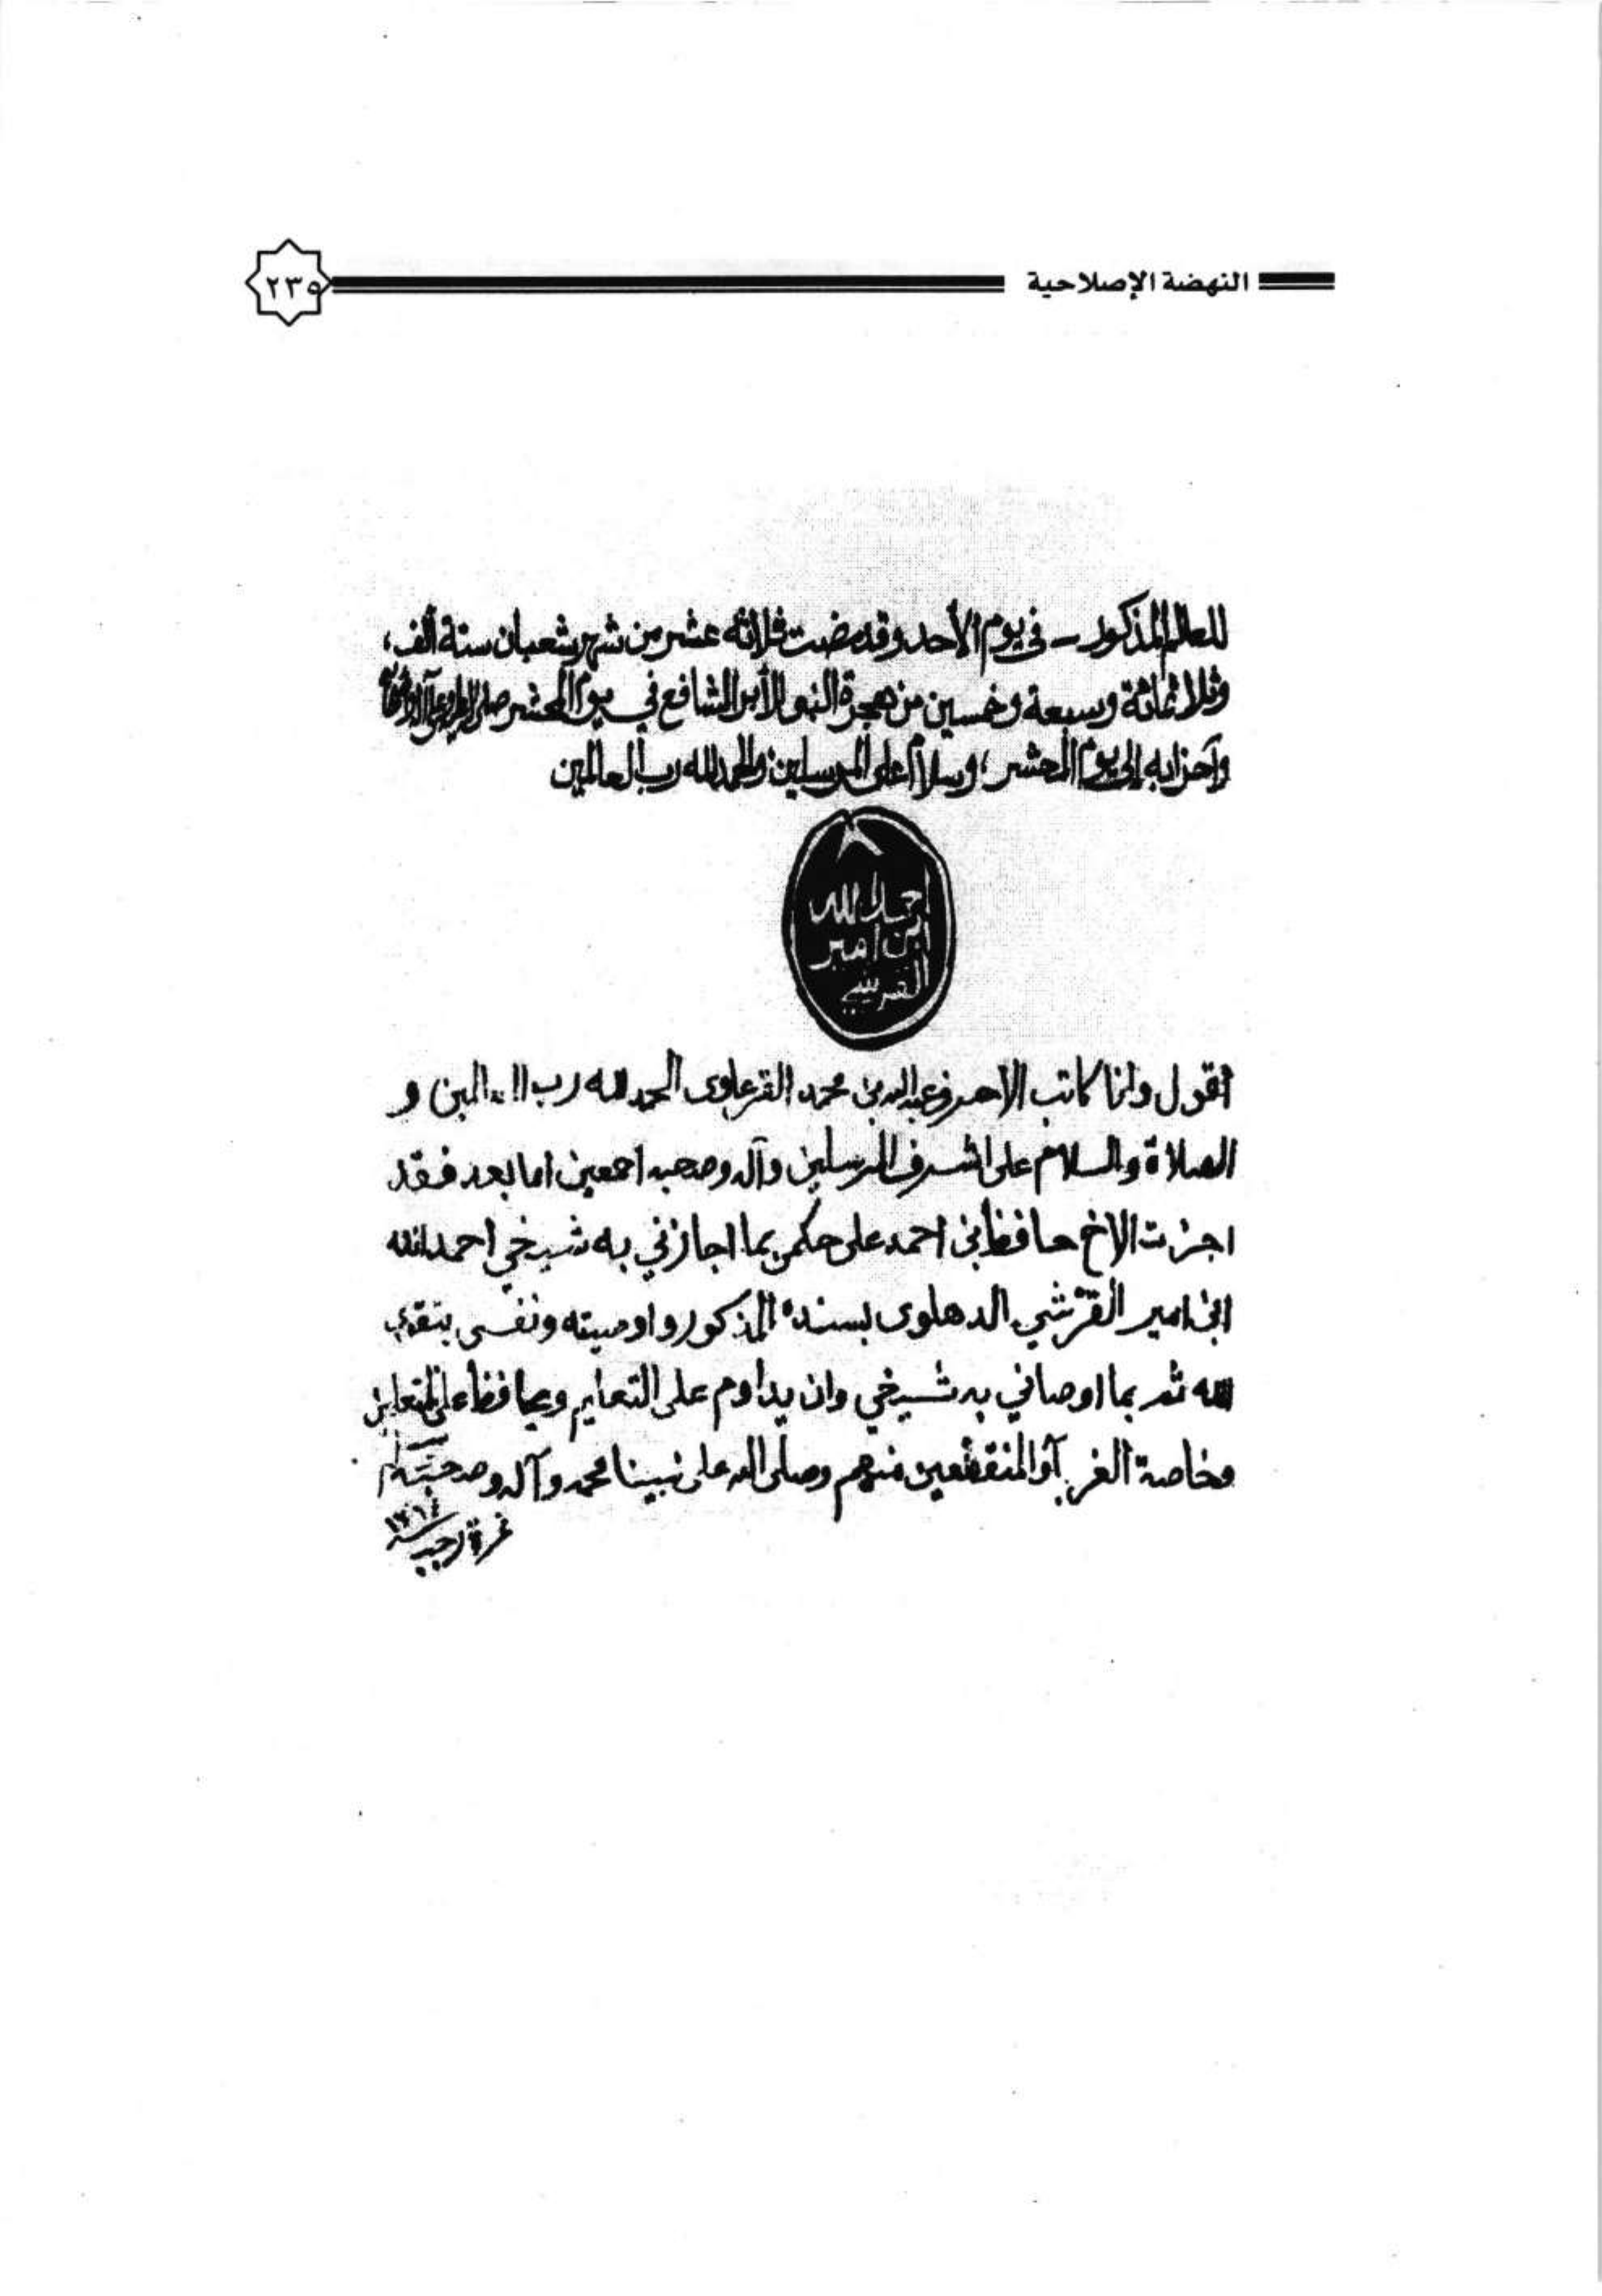 النهضة الإصلاحية
٢٣٥
للعالم المذكور - في يوم الأحد وقد مضت ثلاثة عشر من شهر شعبان سنة ألف،
وثلاثمائة وسبعة وخمسين من هجرة النبي الأبر الشافع في يوم المحشر صلى الله
وأحزابه إلى يوم المحشر، وسلام على المرسلين والحمد لله رب العالمين
احمد الله
ابن امير
القريشي
اقول وانا كاتب الاحرف عبد الله بن محمد القرعاوى الحمد لله رب و
الصلاة والسلام على اشرف المرسلين وآله وصحبه اجمعين اما بعد فقد
اجزت الاخ حافظ بن احمد على حكمي بما اجازني به شيخي احمد الله
ابن امير القرشي الدهلوى بسنده المذكور واوصيته ونفسي بتقوى
الله ثم بما اوصاني به شيخي وان يداوم على التعليم ويحافظ على المتعلمين
وخاصة الغربآء المنقطعين منهم وصلى الله على نبينا محمد وآله وصحبه وسلم
غرة رجب سنة